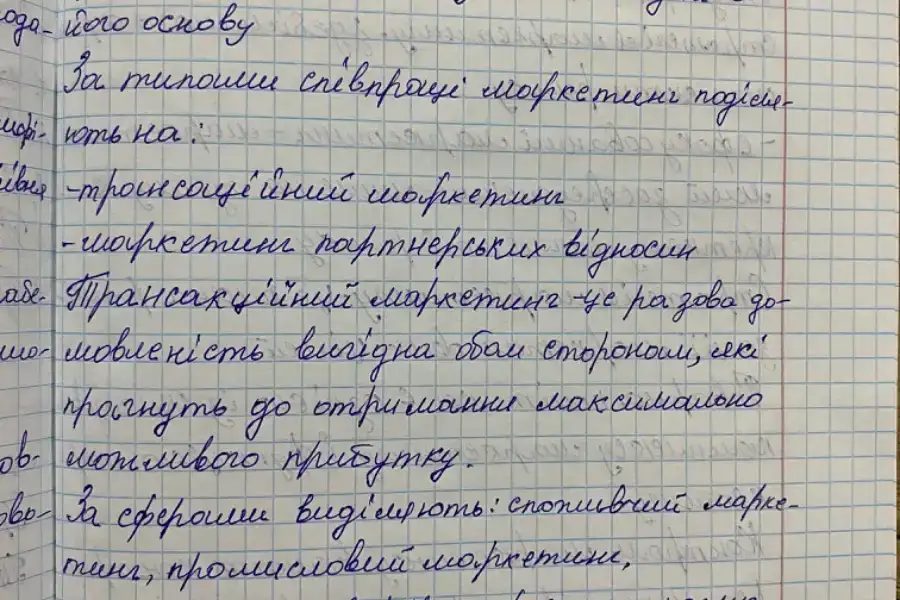 його основу
За типами співпраці маркетинг поділя-
ють на:
-трансаційний маркетинг
-маркетинг партнерських відносин
Трансакційний маркетинг -це разова до-
мовленість вигідна обом сторонам, які
прагнуть до отримання максимально
можливого прибутку.
За сферами виділяють: споживчий марке-
тинг, промисловий маркетинг,